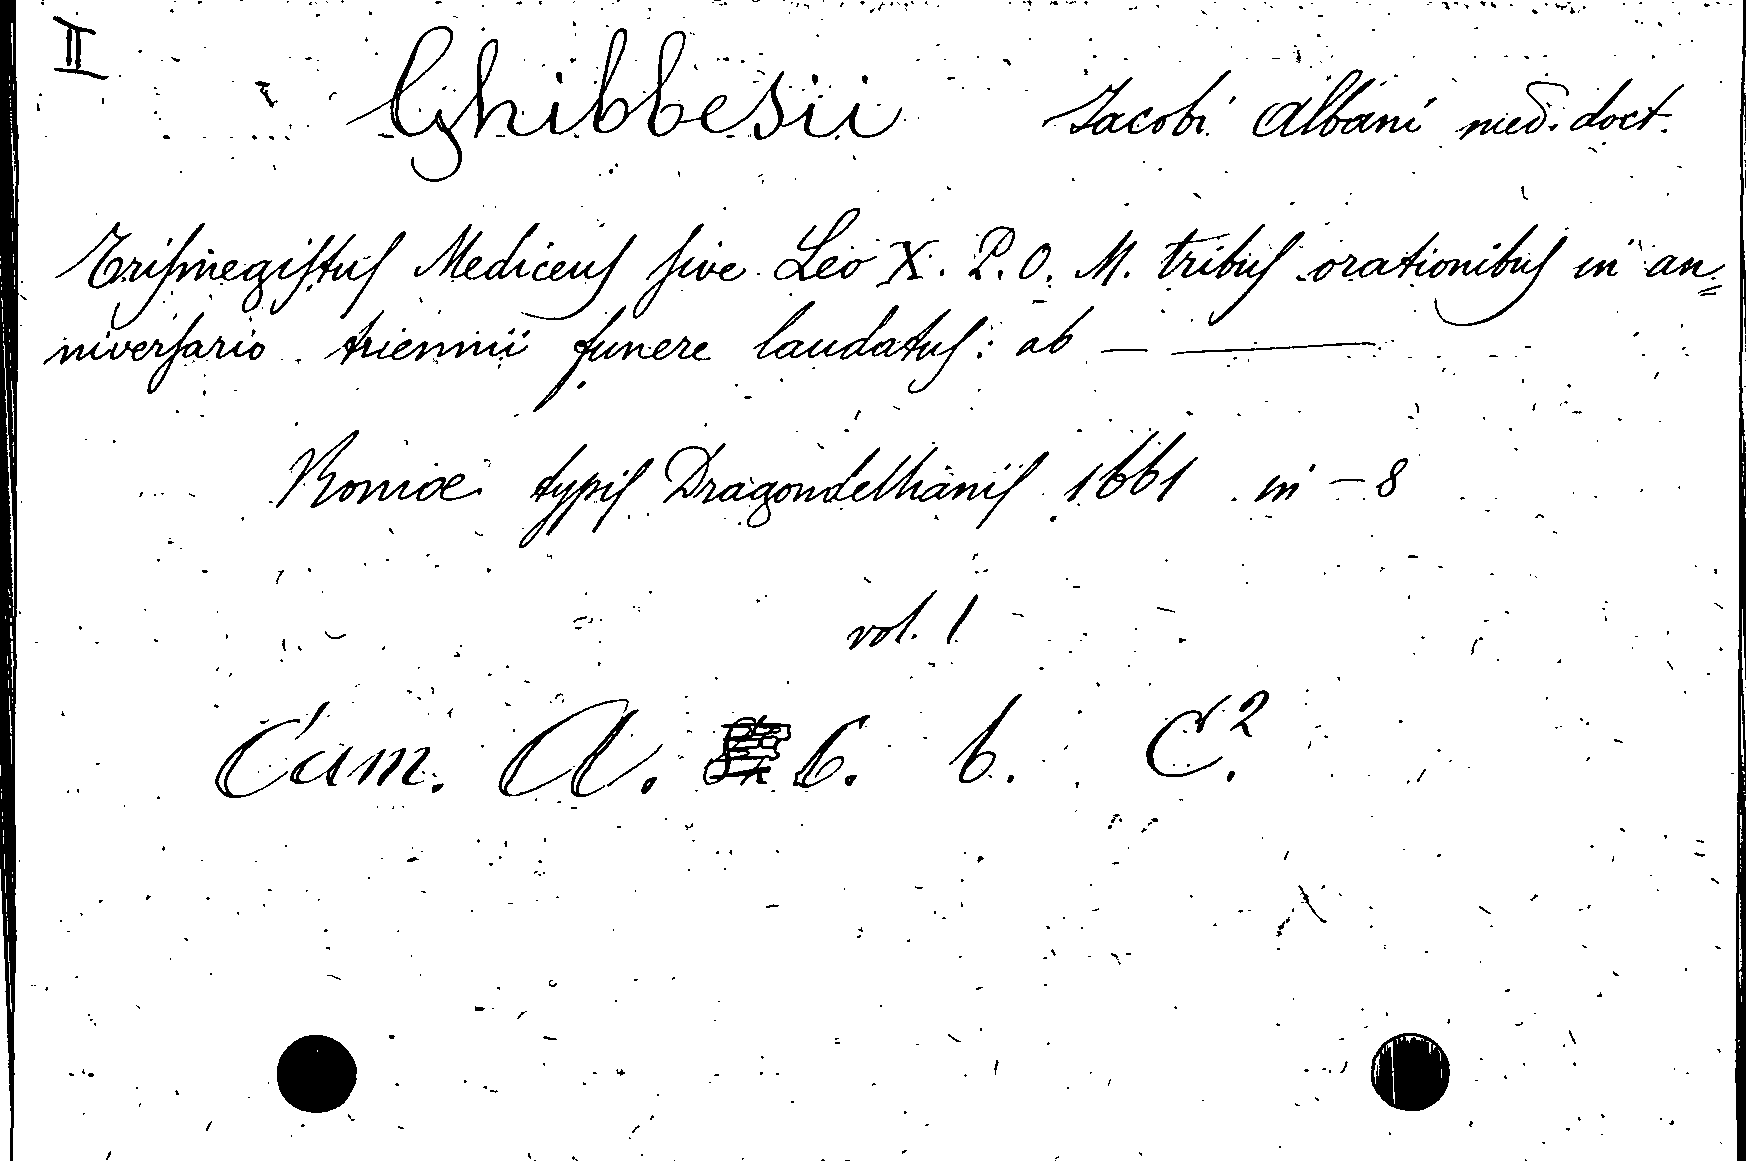 II
Ghibbesii Jacobi Albani med. doct.
Trismegistus Mediceus sive Leo X. P. O. M. tribus orationibus in an=
niversario triennii funere laudatus: ab — ———
Romæ typis Dragondellianis 1661 in – 8
vol. 1
Cam. A. 6. b. C².